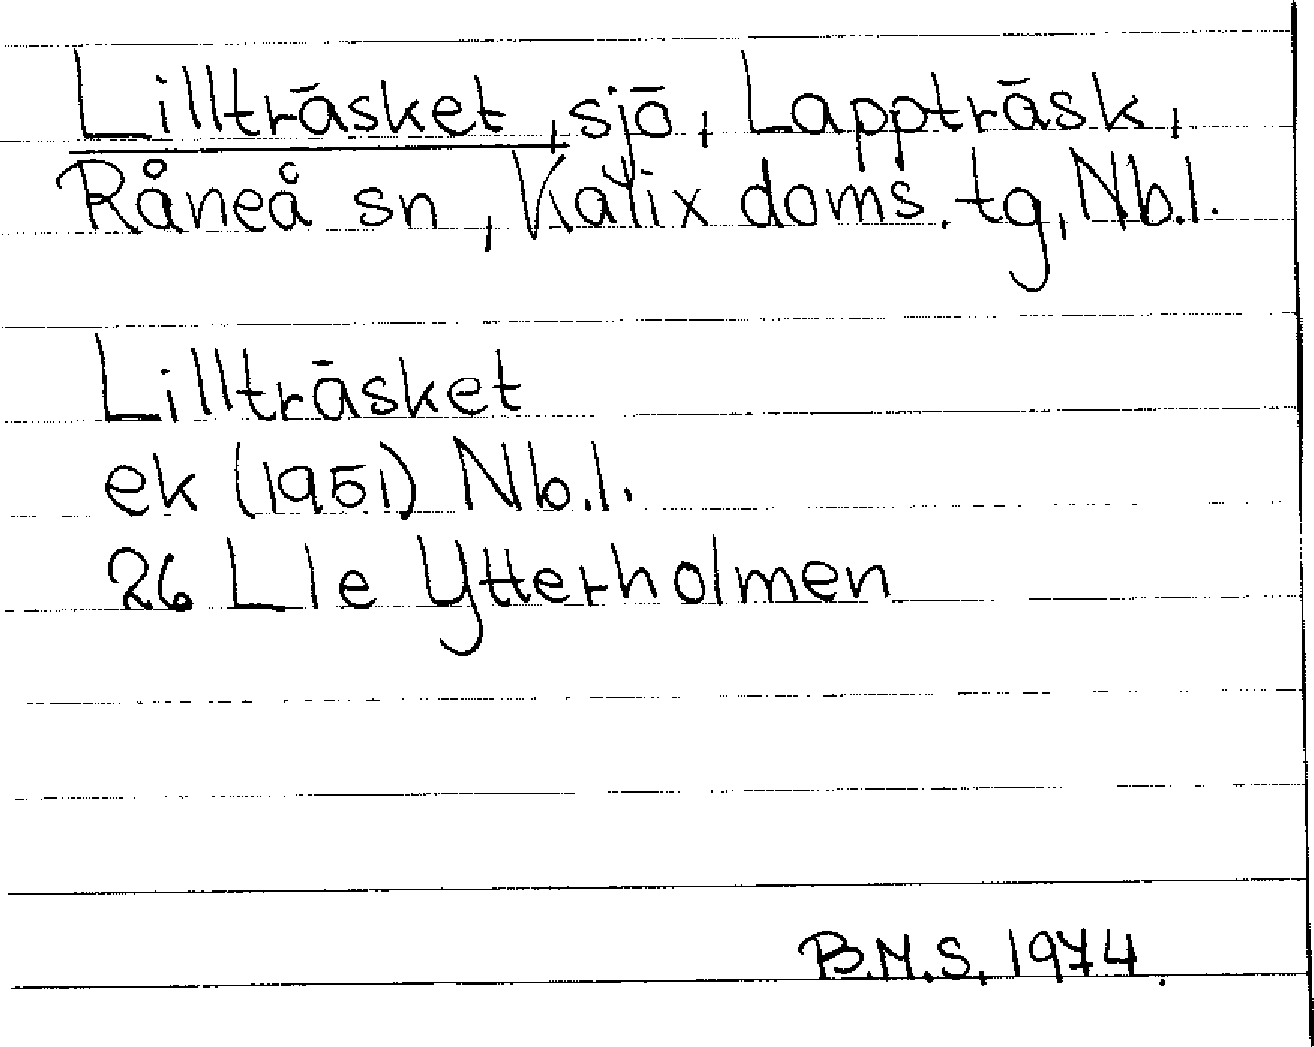 Lillträsket, sjö, Lappträsk,
Råneå sn, Kalix doms. tg, Nb.l.
Lillträsket
ek (1951) Nb.l.
26 L 1e Ytterholmen
B.N.S. 1974.